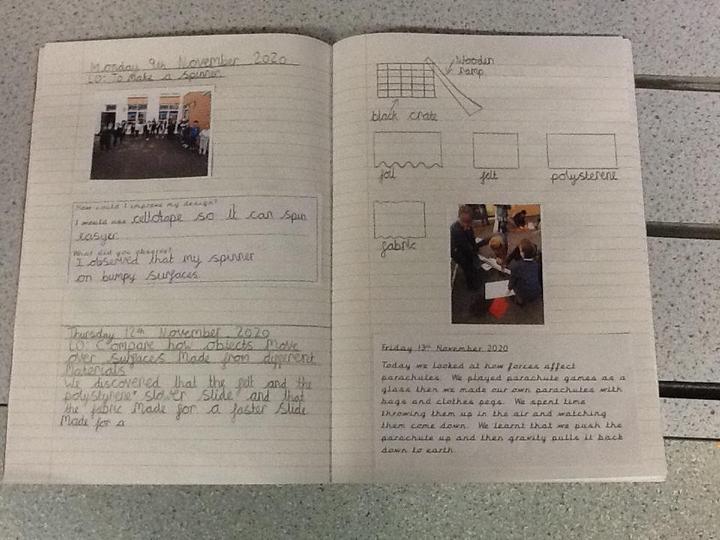 Monday 9th November 2020
LO: To Make a spinner.
How could I improve my design?
I would use cellotape so it can spin
easyer.
What did you observe?
I observed that my spinner
on bumpy surfaces.
Thursday 12th November 2020
LO: Compare how objects Move
over surfaces Made from different
Materials
We discovered that the felt and the
polystyrene slower slide and that
the fabric Made for a faster slide
Made for a
Wooden
ramp
black crate
foil
felt
polysterene
fabric
Friday 13th November 2020
Today we looked at how forces affect
parachutes. We played parachute games as a
glass then we made our own parachutes with
bags and clothes pegs. We spent time
throwing them up in the air and watching
them come down. We learnt that we push the
parachute up and then gravity pulls it back
down to earth